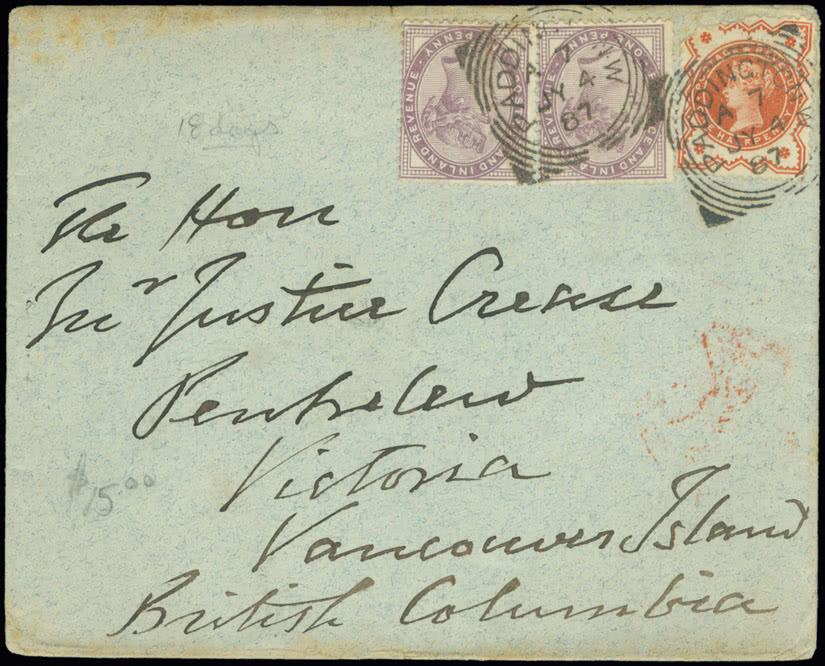 POSTAGE AND INLAND REVENUE · ONE PENNY ·
PADDINGTON W
A 7
JY 4
87
HALFPENNY
PADDINGTON W
A 7
JY 4
87
18 days
The Hon
Mr Justice Crease
Pentrelew
Victoria
$15.00
Vancouver Island
British Columbia